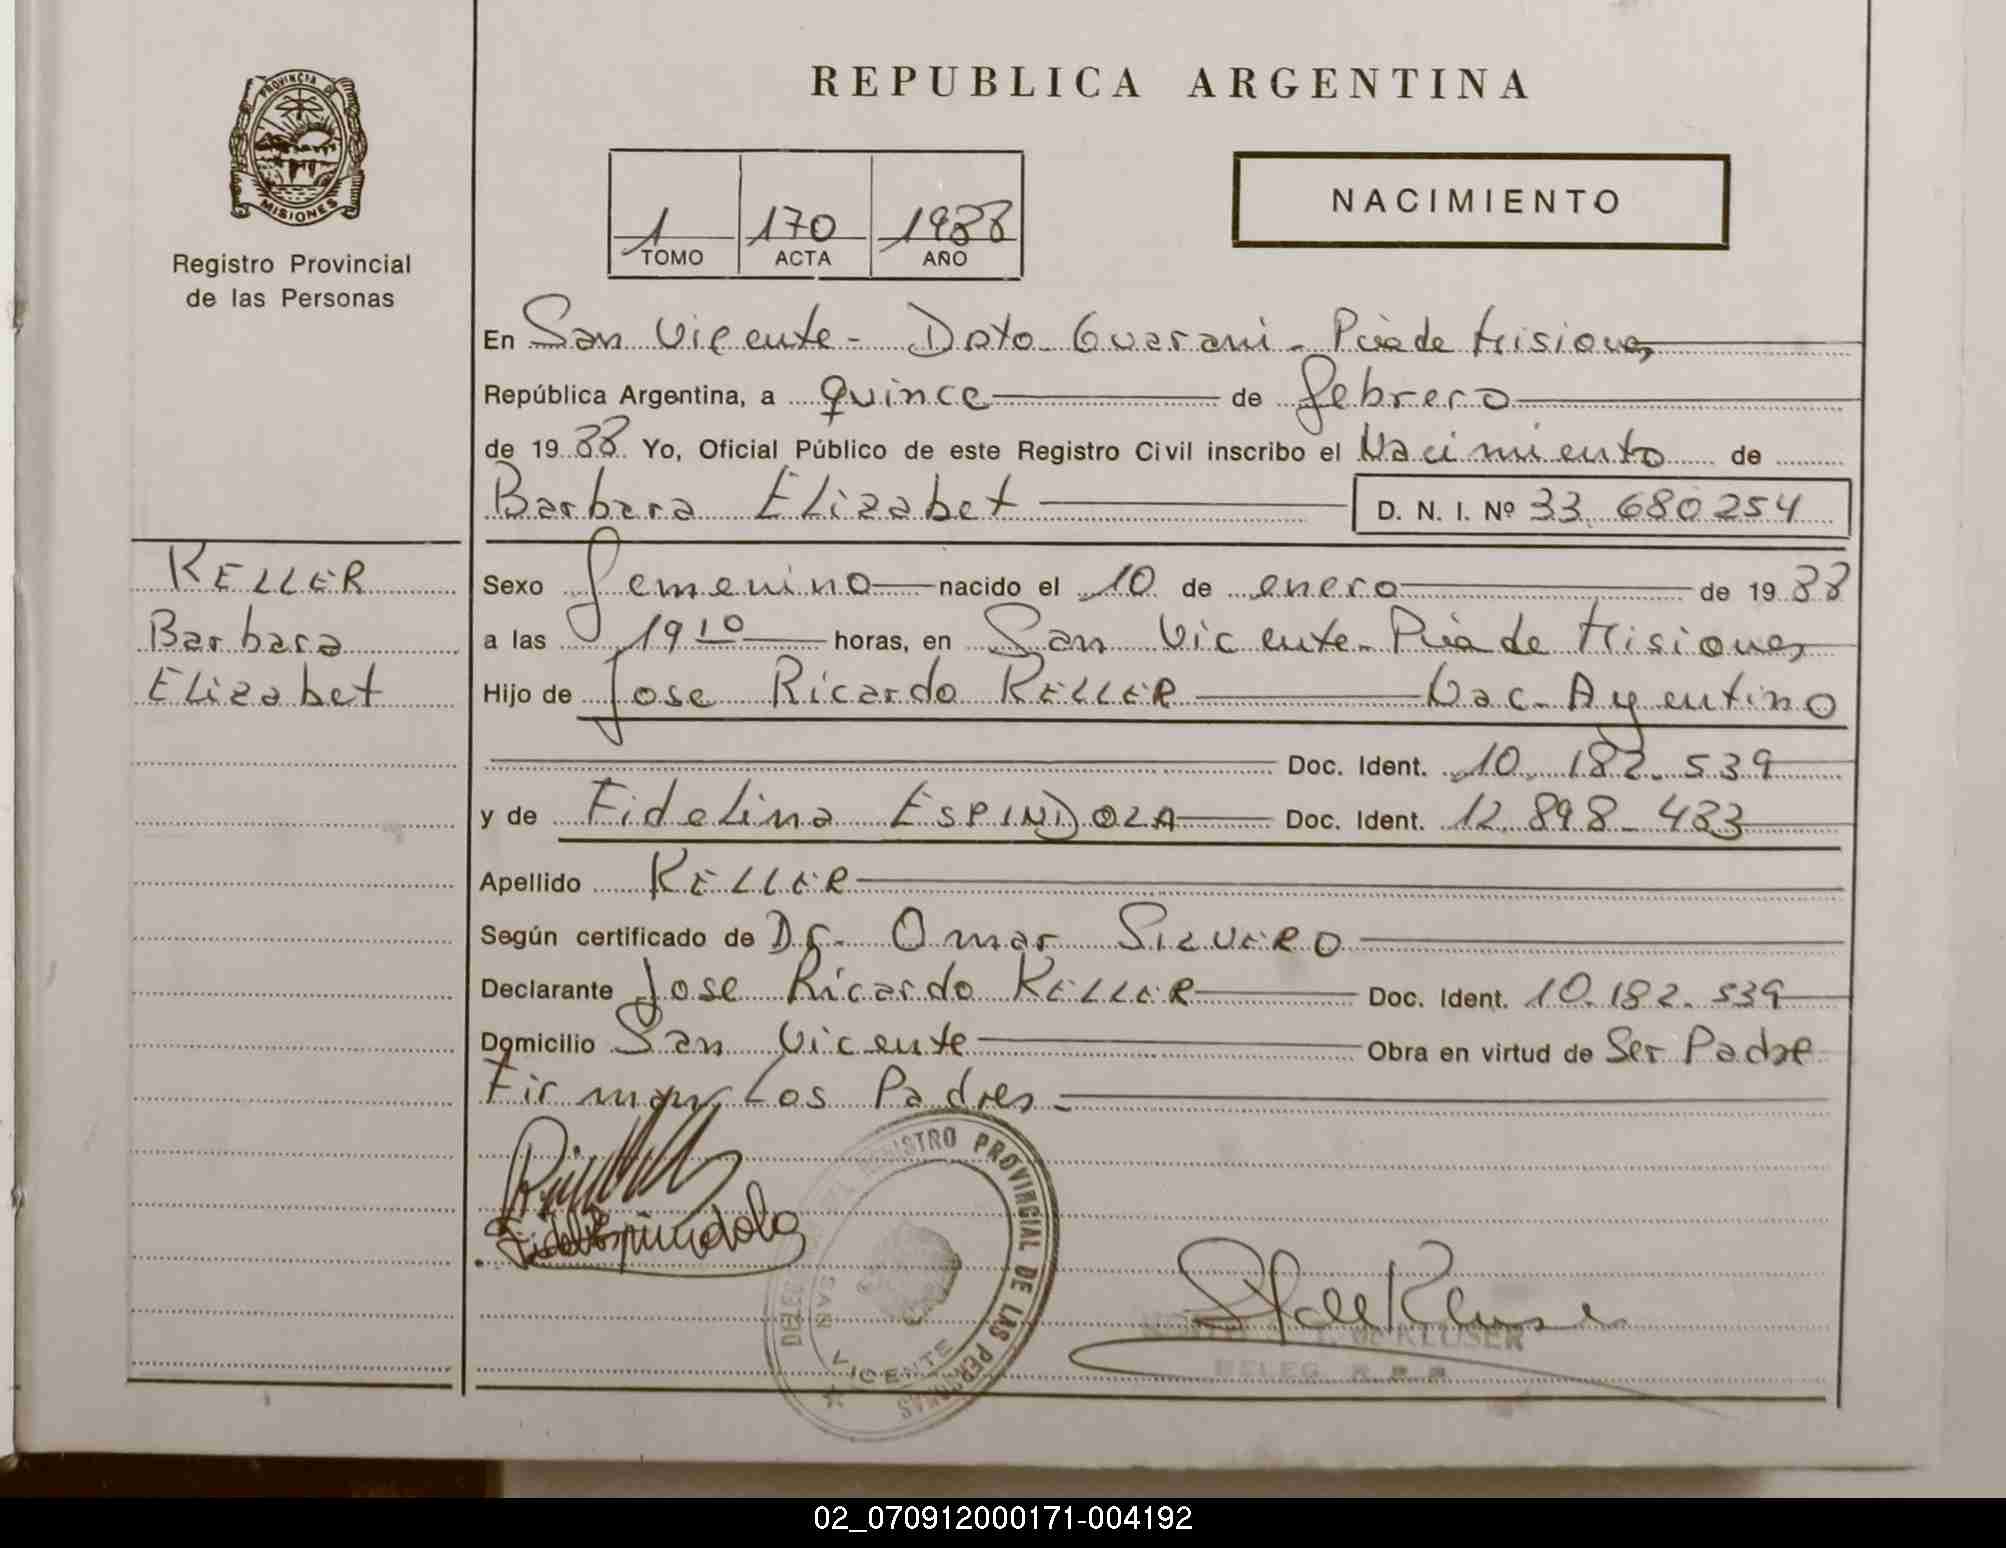 PROVINCIA DE
MISIONES
Registro Provincial
de las Personas
REPUBLICA ARGENTINA
1 170 1988
TOMO ACTA AÑO
NACIMIENTO
En San Vicente - Dpto Guarani - Pcia de Misiones
República Argentina, a quince de febrero
de 1988 Yo, Oficial Público de este Registro Civil inscribo el Nacimiento de
Barbara Elizabet D. N. I. Nº 33 680254
KELLER
Barbara
Elizabet
Sexo femenino nacido el 10 de enero de 1988
a las 19 10 horas, en San Vicente - Pcia de Misiones
Hijo de Jose Ricardo KELLER Nac. Argentino
Doc. Ident. 10. 182. 539
y de Fidelina ESPINDOLA Doc. Ident. 12 898 - 433
Apellido KELLER
Según certificado de Dr. Omar SILVERO
Declarante Jose Ricardo KELLER Doc. Ident. 10. 182. 539
Domicilio San Vicente Obra en virtud de Ser Padre
Firman Los Padres -
REGISTRO PROVINCIAL DE LAS PERSONAS
SAN VICENTE
KLUSER
DELEG
02_070912000171-004192